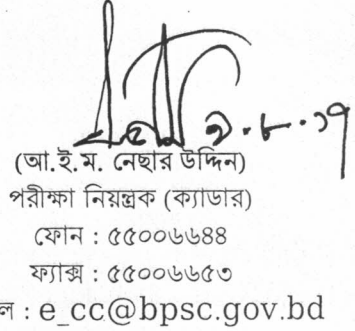 ৯.৮.১৭
(আ.ই.ম. নেছার উদ্দিন)
পরীক্ষা নিয়ন্ত্রক (ক্যাডার)
ফোন : ৫৫০০৬৬৪৪
ফ্যাক্স : ৫৫০০৬৬৫৩
ল : e_cc@bpsc.gov.bd